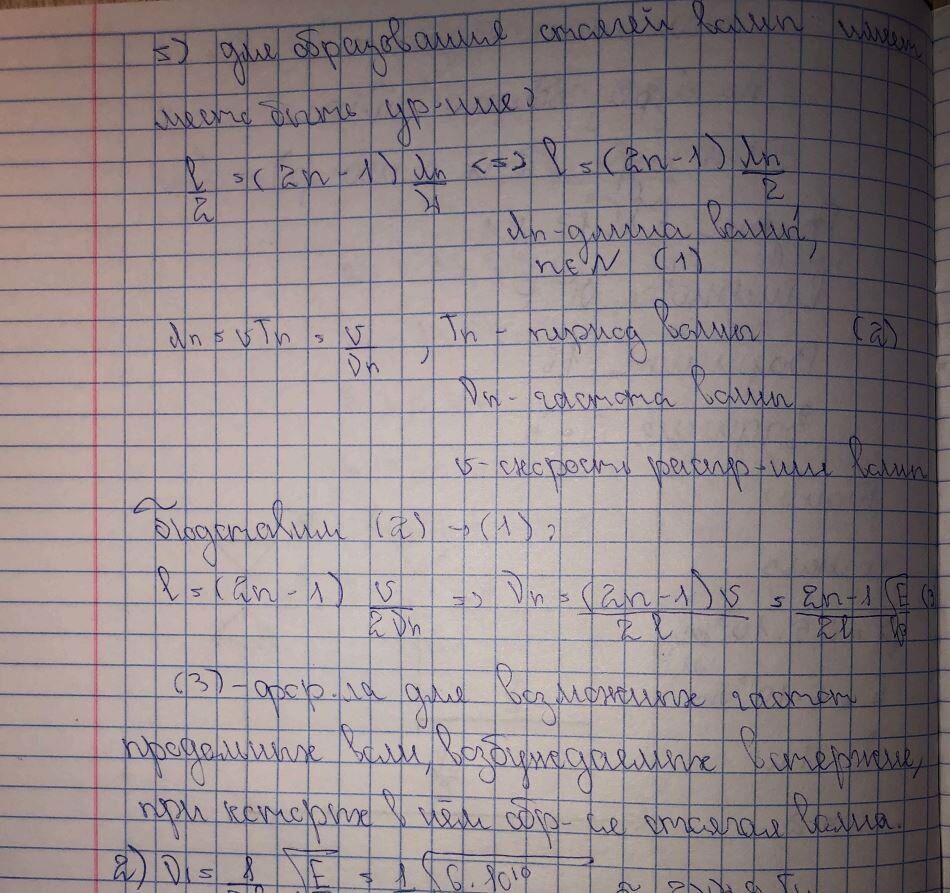 5) для образования стоячей волны имеет
место быть ур-ние:
l/2 = (2n-1) λn/4 <=> l = (2n-1) λn/2
λn - длина волны,
n∈N (1)
λn = υTn = υ/νn, Tn - период волны (2)
νn - частота волны
υ - скорость распр-ния волны
Подставим (2) → (1):
l = (2n-1) υ/2νn => νn = (2n-1)υ/2l = 2n-1/2l √E/ρ (3)
(3) - фор-ла для возможных частот
продольных волн, возбуждаемых в стержне,
при которых в нём обр-ся стоячая волна.
2) ν1 = √E = 1 √6·10¹⁰